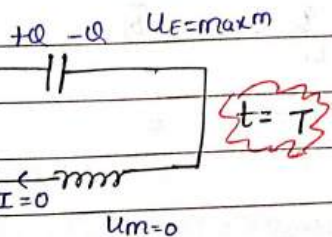 +Q -Q UE=maxm
t= T
I=0
Um=0